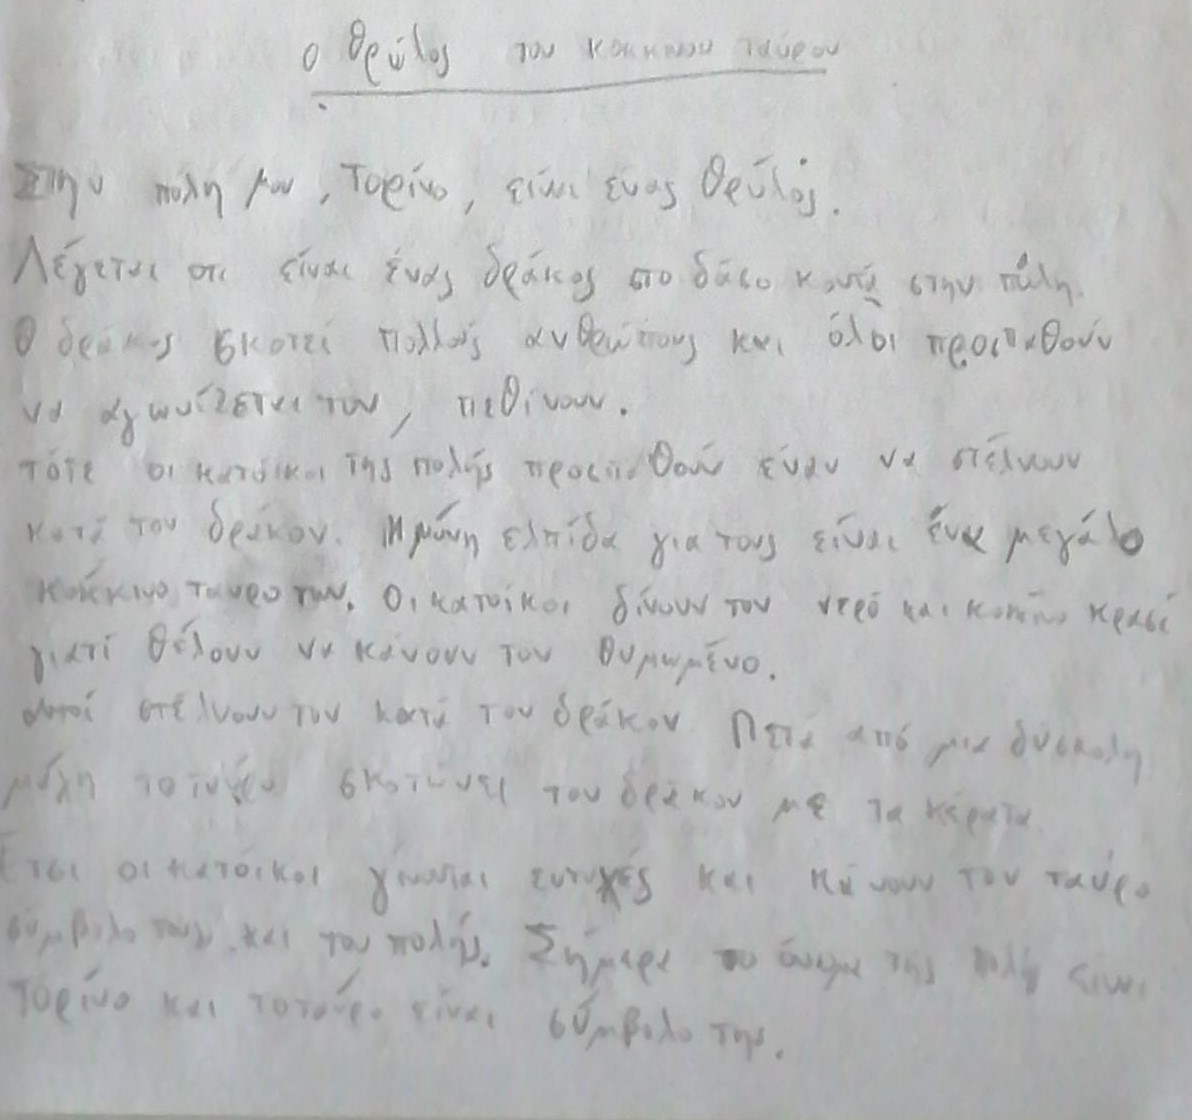 Ο θρύλος του κόκκινου ταύρου
Στην πόλη μου, Τορίνο, είναι ένας θρύλος.
Λέγεται οτι είναι ένας δράκος στο δάσο κοντά στην πόλη.
Ο δράκος σκοτεί πολλούς ανθρώπους και όλοι προσπαθούν
να αγωνίζεται τον, πεθίνουν.
τότε οι κατόικοι της πολής προσπαθούν έναν να στέλνουν
κατά τον δράκον. Η μόνη ελπίδα για τους είναι ένα μεγάλο
κόκκινο ταυρο των. Οι κατοίκοι δίνουν τον νερό και κοκκίνο κρασί
γιατί θέλουν να κάνουν τον θυμωμένο.
αυτοί στέλνουν τον κατά τον δράκον Μετά από μια δύσκολη
μάλη το ταύρο σκοτώνει τον δράκον με τα κέρατα
Ετσι οι κατόικοι γίνονται ευτυχές και κάνουν τον ταύρο
σύμβολο τους και του πολής. Σήμερα το όνομα της πολής είναι
Τορίνο και το ταύρο είναι σύμβολο της.